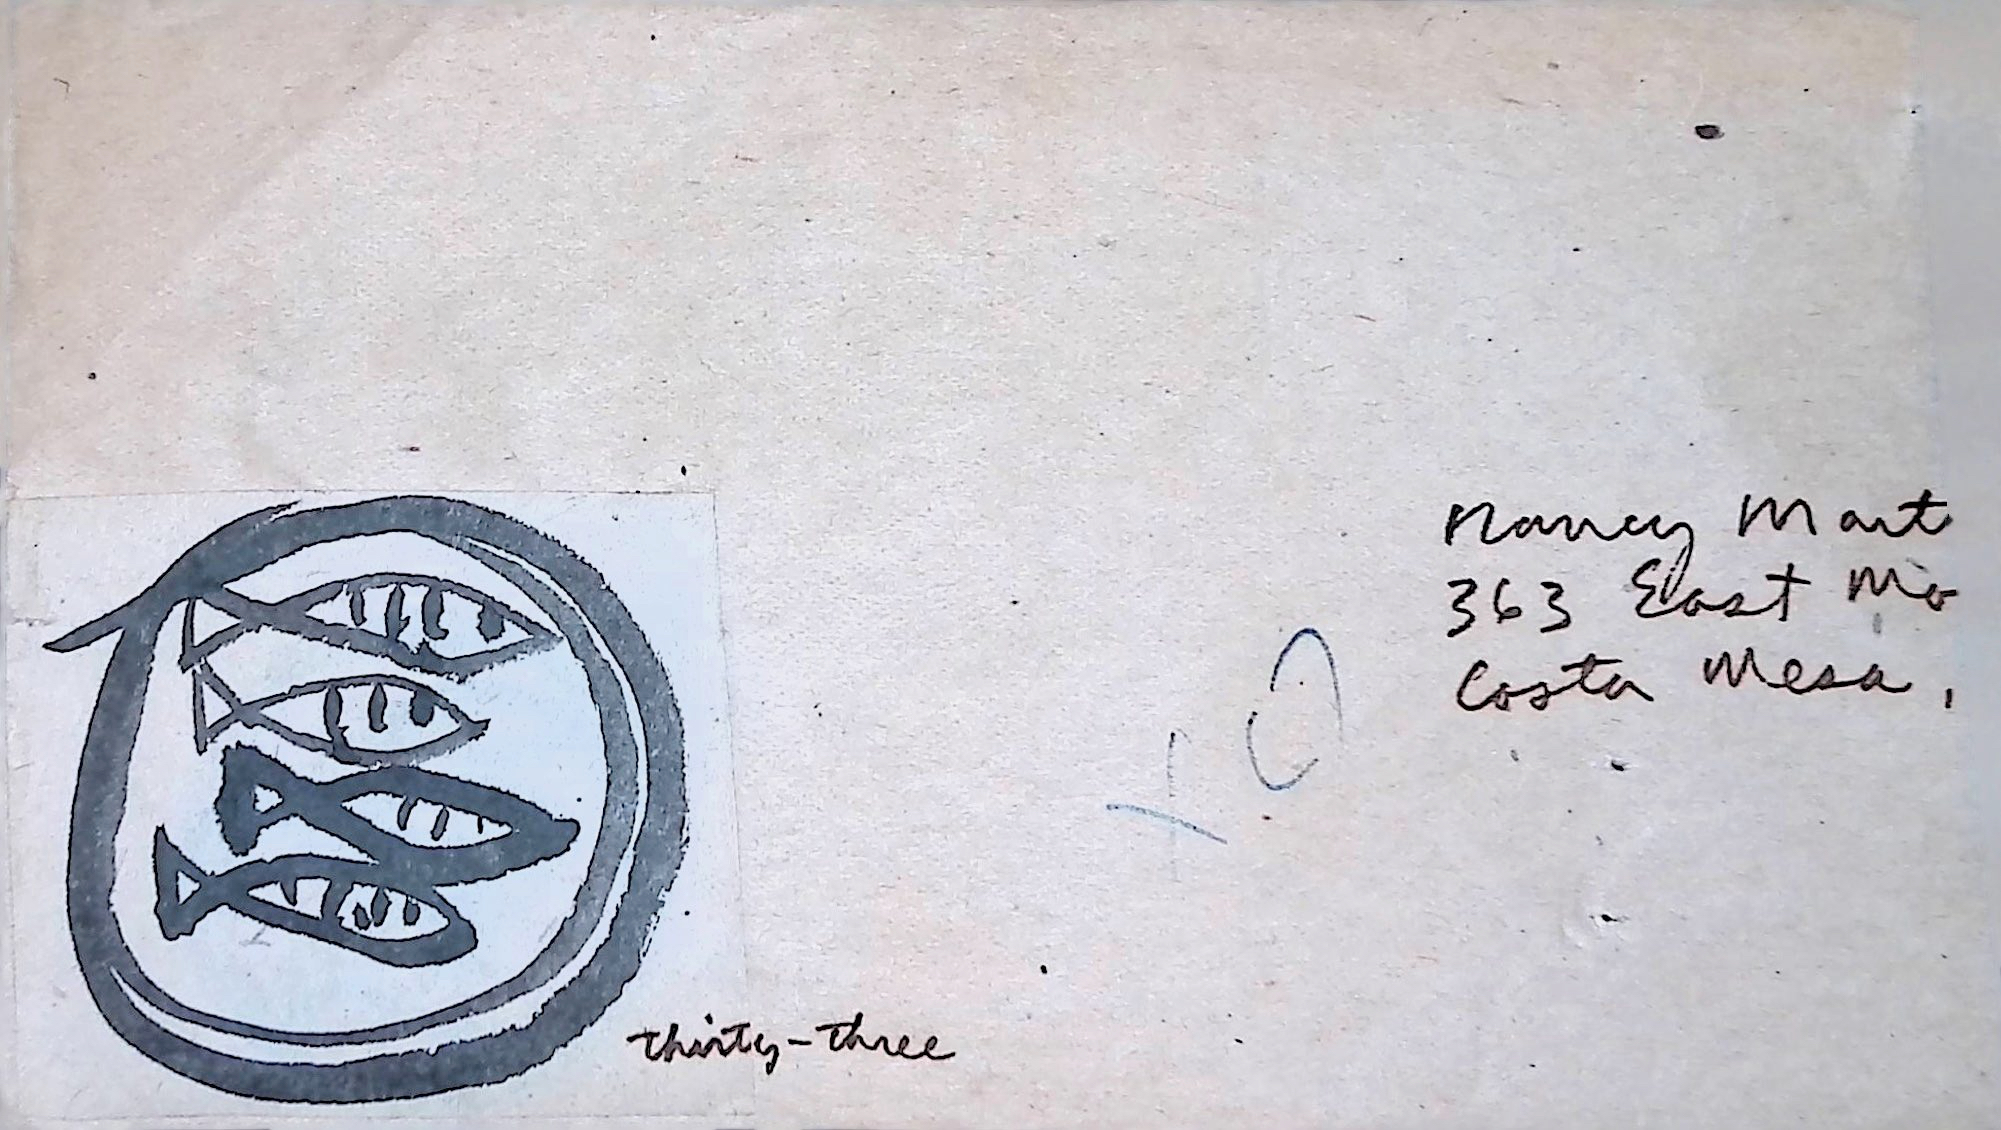 Nancy Mart
363 East Mo
Costa Mesa,
thirty-three